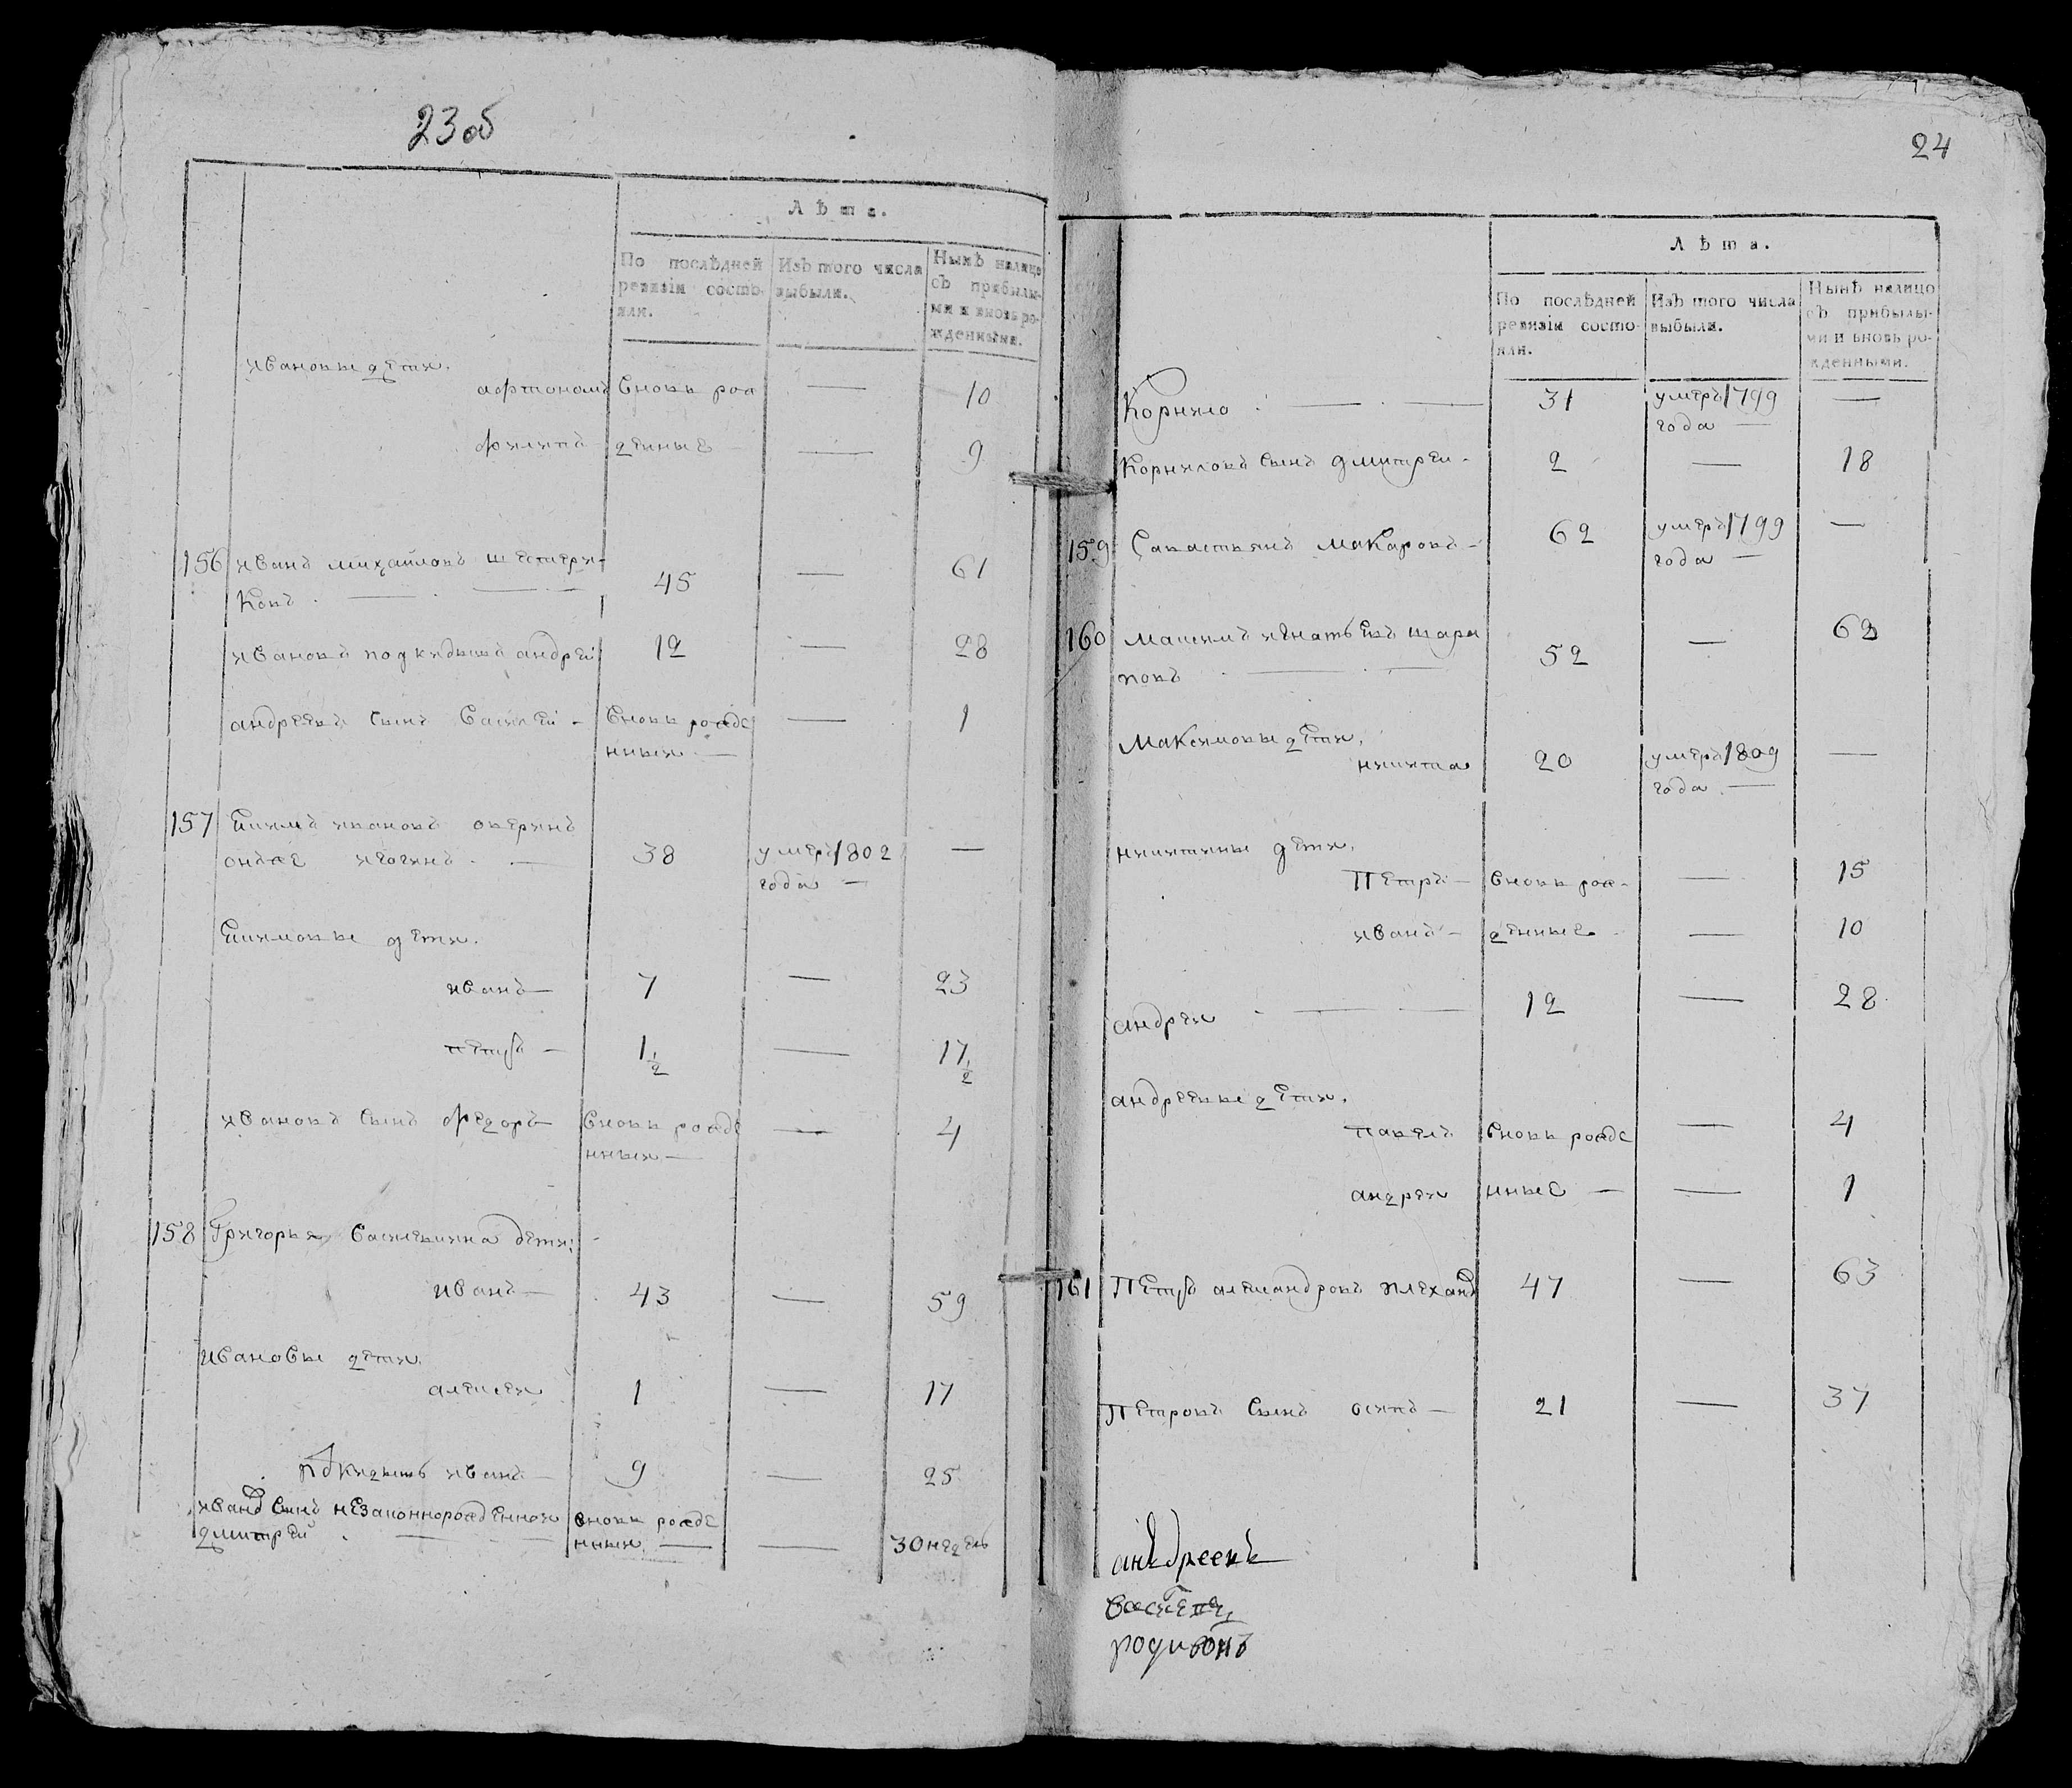 23 об
Лѣта.
По послѣдней ревизіи состояли.
Изъ того числа выбыли.
Нынѣ налицо съ прибылыми и вновь рожденными.
ивановы дети.
афтономъ вновь рож — 10
филипъ денные — 9
156 иванъ михайловъ шестери-
ковъ 45 — 61
ивановъ подкидышъ андрей 12 — 28
андреевъ сынъ василей вновь рожде — 1
нныи
157 екимъ ивановъ аверинъ
онъже 38 умеръ 1802 —
года —
екимовы дети.
иванъ — 7 — 23
петръ — 1 1/2 — 17 1/2
ивановъ сынъ федоръ вновь рожде — 4
нныи —
158 Григорья василевича дети:
иванъ — 43 — 59
ивановы дети.
алексеи 1 — 17
подкидышъ иванъ — 9 — 25
сынъ незаконнорожденнои вновь рожде
дмитрей нныи — — 30 недель
24
Лѣта.
По послѣдней ревизіи состояли.
Изъ того числа выбыли.
Нынѣ налицо съ прибылыми и вновь рожденными.
Корнило 31 умеръ 1799 —
года —
Корниловъ сынъ дмитреи 2 — 18
159 Савастьянъ Макаровъ — 62 умеръ 1799 —
года —
160 Максимъ игнатьевъ шара
повъ 52 — 62
Максимовы дети.
никита 20 умеръ 1809 —
года —
никитины дети.
Петръ — вновь рож- — 15
иванъ — денные — 10
андреи 12 — 28
андреевы дети.
павелъ вновь рожде — 4
андреи нные — — 1
161 Петръ александровъ плехановъ 47 — 63
Петровъ сынъ осипъ — 21 — 37
андреевъ
родивонъ